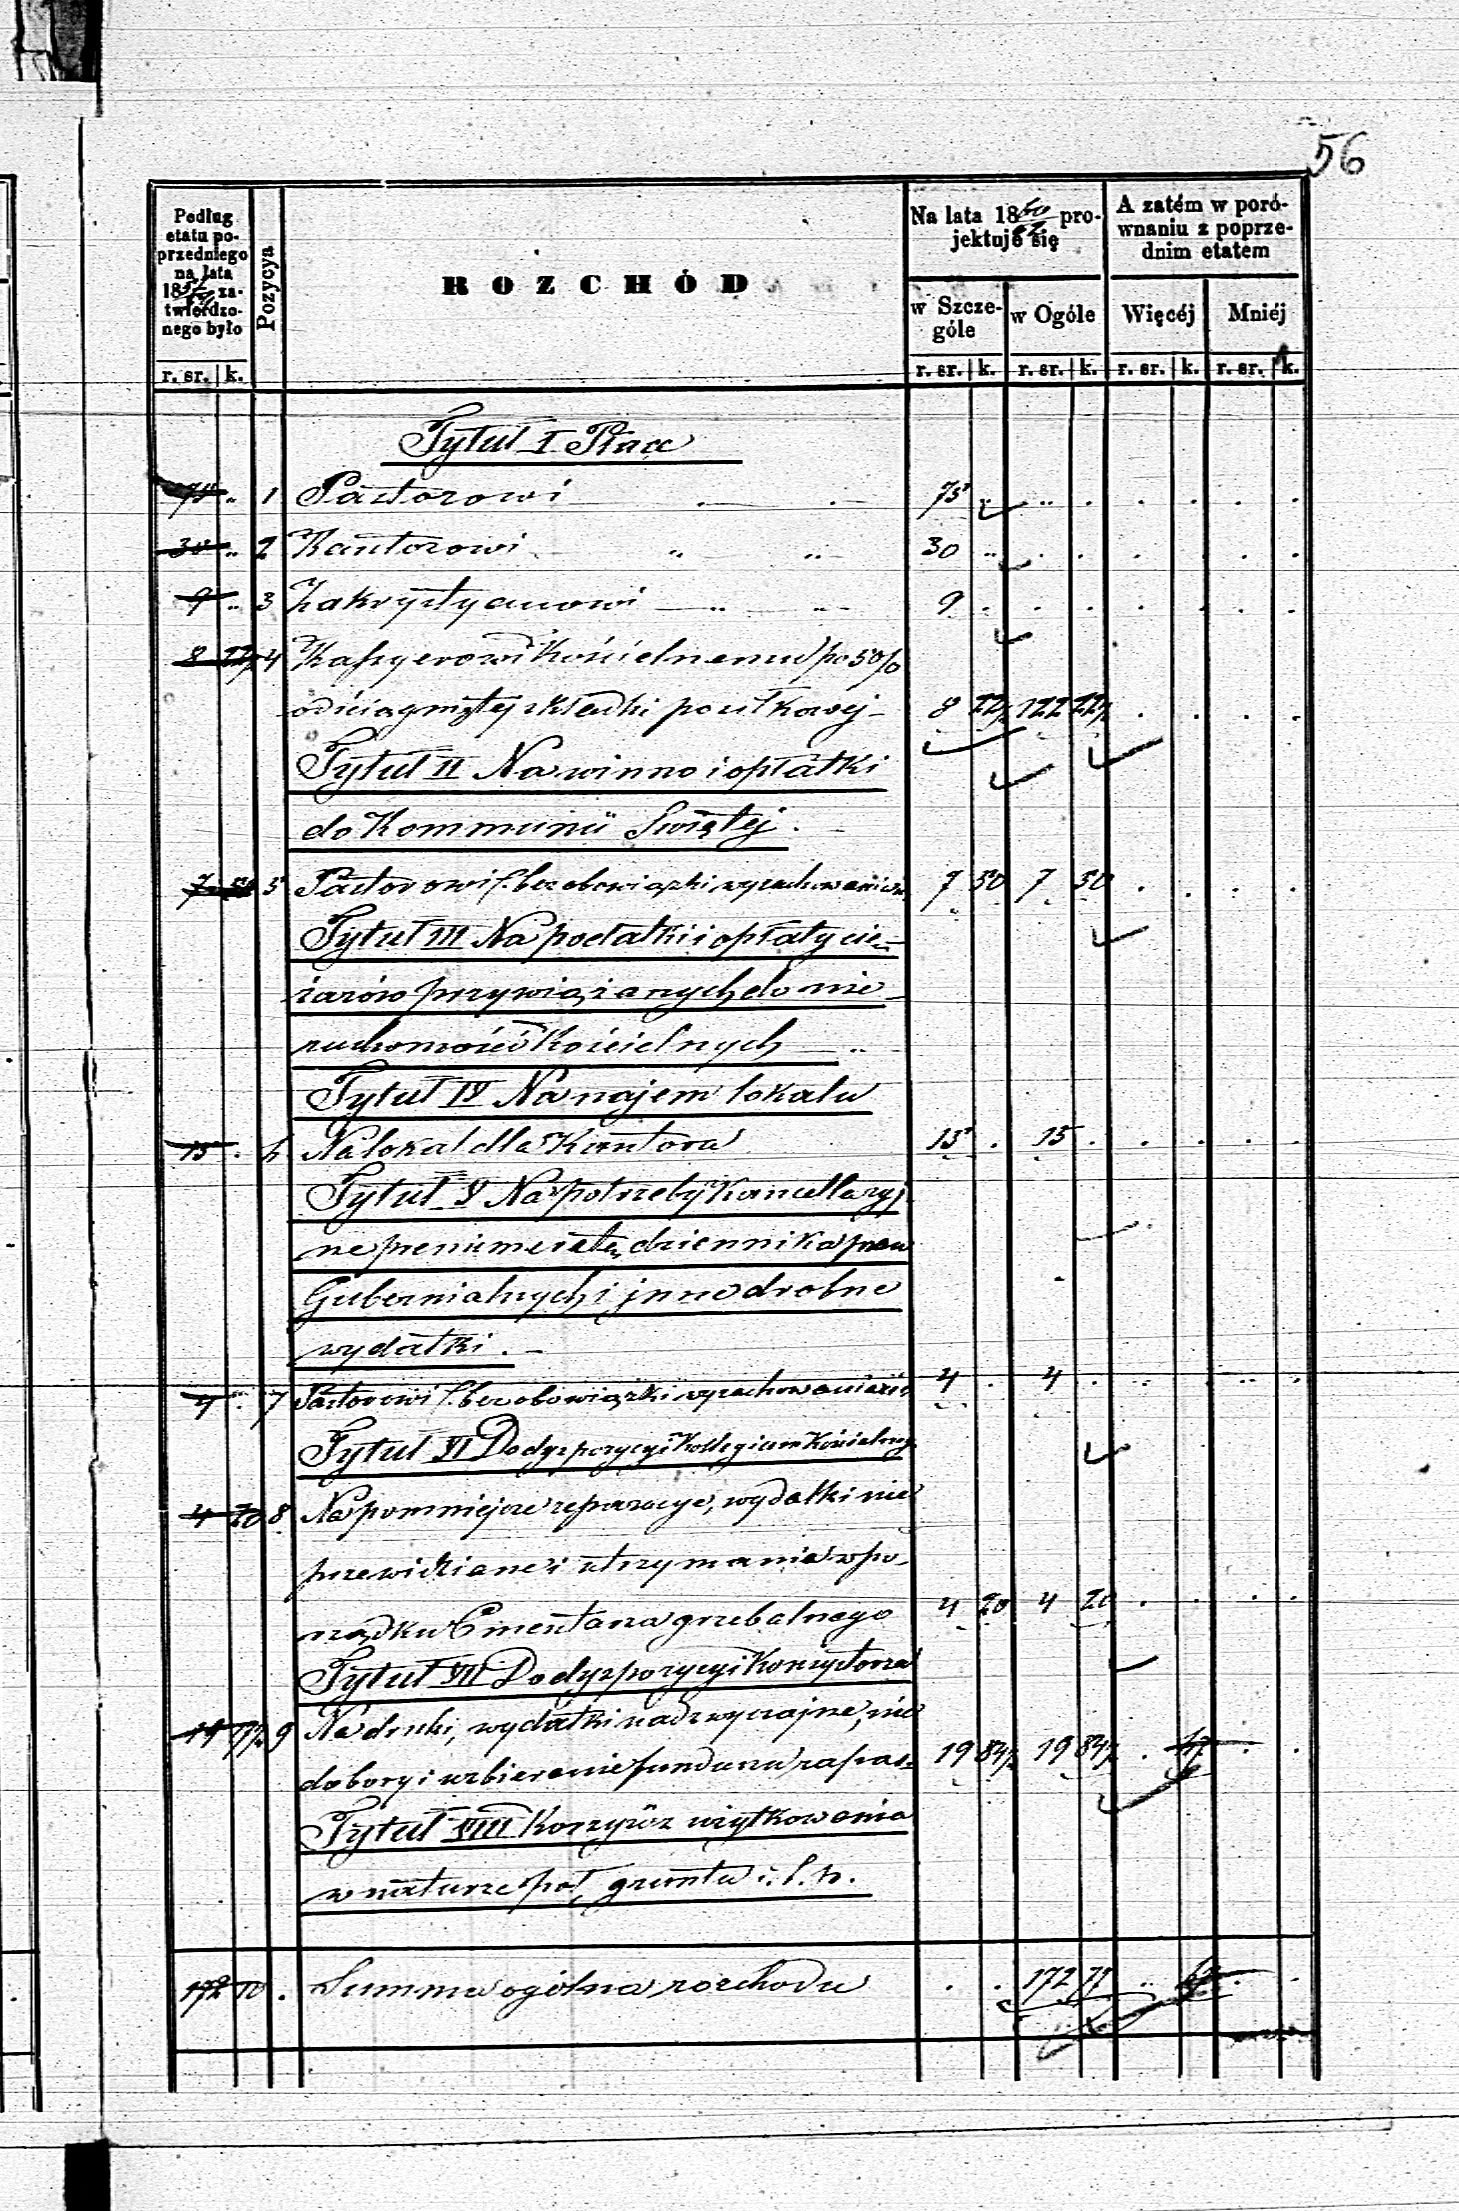 56
Podług etatu poprzedniego na lata 18 zatwierdzonego było
Pozycya
ROZCHÓD
Na lata 1860/62 projektuje się
A zatém w porównaniu z poprzednim etatem
w Szczególe
w Ogóle
Więcéj
Mniéj
r. sr. k. r. sr. k. r. sr. k. r. sr. k. r. sr. k.
Tytuł I Płace
75 „ 1 Pastorowi 75 „
30 „ 2 Kantorowi „ „ 30 „
9 „ 3 Zakrystyanowi „ „ 9 .
8 22½ 4 Kassyerowi Kościelnemu po 5 %
od ściągniętej składki posiłkowej 8 22½ 122 22½
Tytuł II Na winno i opłatki
do Kommunii Świętej . -
7 50 5 Pastorowi (bez obowiązki wyrachowania się 7 50 7 50
Tytuł III Na podatki i opłaty cię-
żarów przywiązanych do nie-
ruchomości Kościelnych „
Tytuł IV Na najem lokalu
15 . 6 Na lokal dla Kantora 15 . 15 .
Tytuł V Na potrzeby Kancellaryj
ne prenumeratę dziennika praw
Gubernialnych i jnne drobne
wydatki . -
4 . 7 Pastorowi (bez obowiązki wyrachowania się 4 . 4 .
Tytuł VI Do dyspozycyi Kollegium Kościelneg
4 20 8 Na pomniejsze reparacye, wydatki nie
przewidziane i utrzymania w po-
rządku Cmentarza grzebalnego 4 20 4 20
Tytuł VII Do dyspozycyi Konsystorza
9 Na druki, wydatki nadzwyczajne, nie
dobory i uzbieranie funduszu zapas- 19 84½ 19 84½
Tytuł VIII Korzyść z użytkowania
w naturze pól, gruntu i. t. p.
172 . Summa ogólna rozchodu . . 172 77